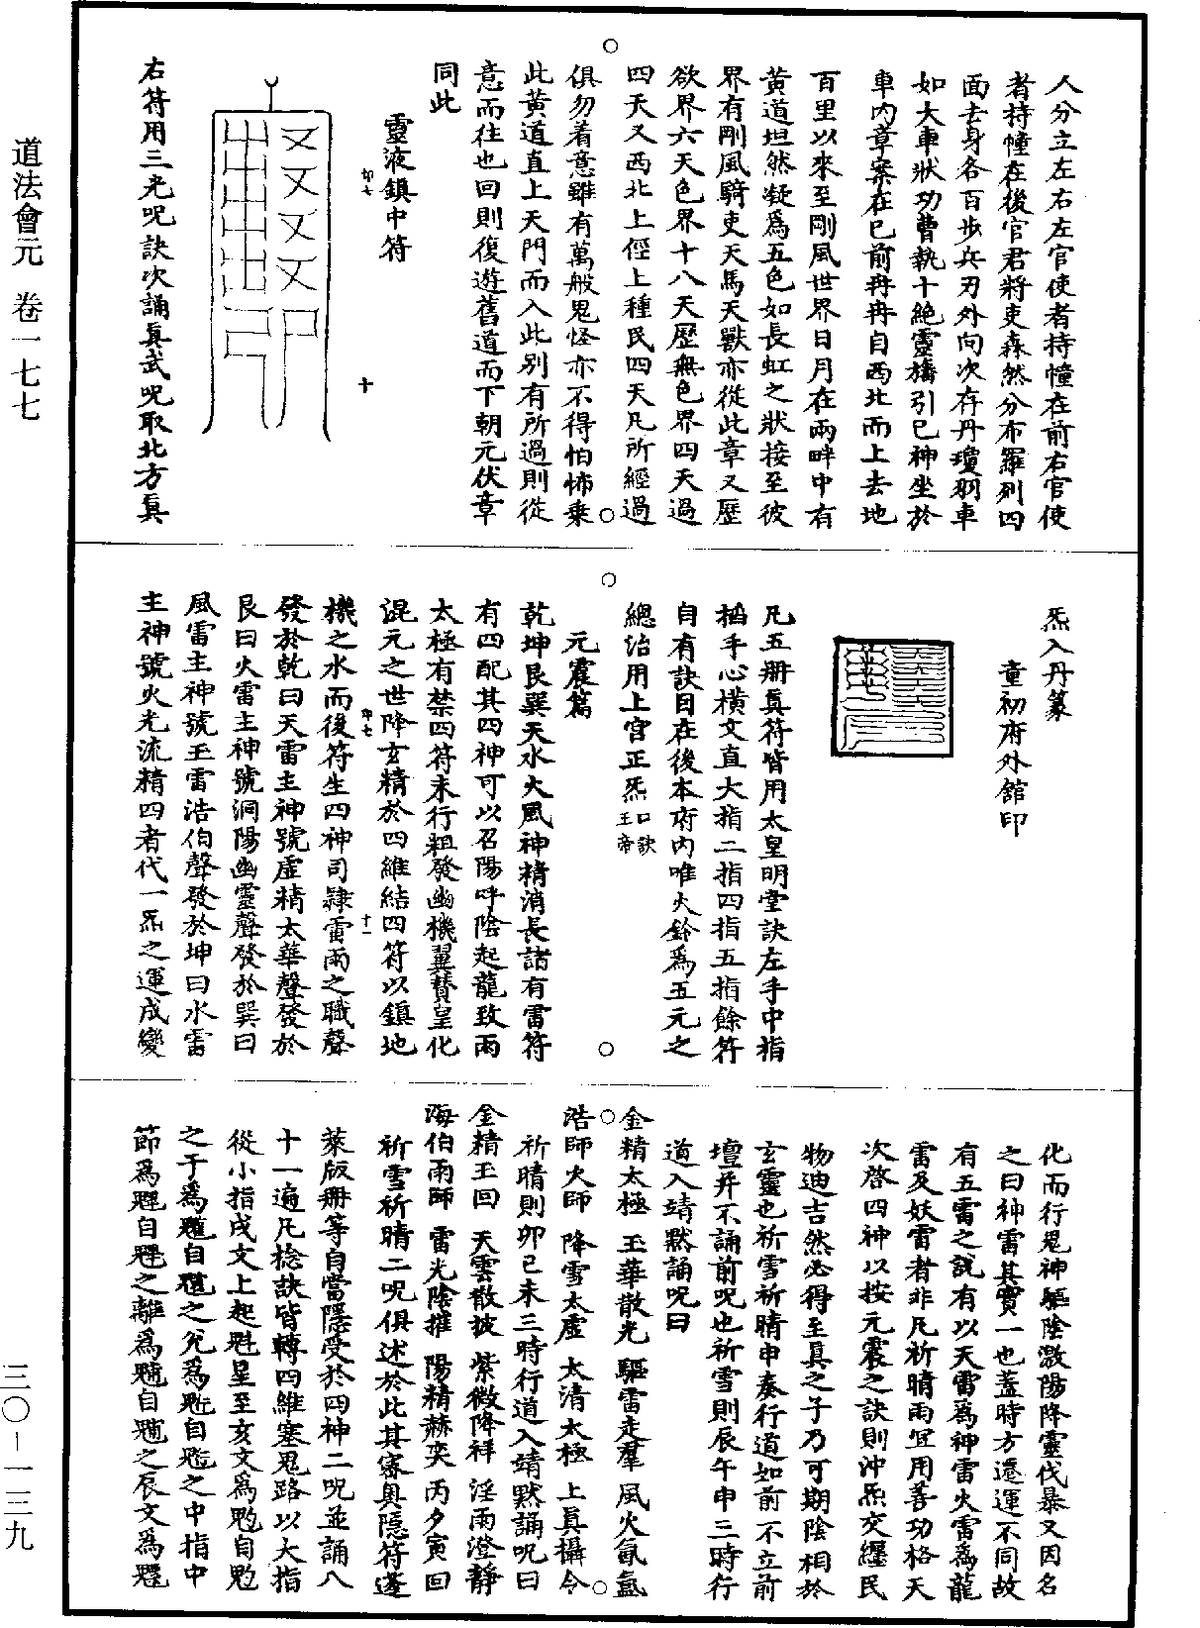 道法會元　卷一七七
三〇－一三九
人分立左右左官使者持幢在前右官使
者持幢在後官君將吏森然分布羅列四
面去身各百步兵刃外向次存丹瓊羽車
如大車狀功曹執十絕靈旛引己神坐於
車內章案在己前冉冉自西北而上去地
百里以來至剛風世界日月在兩畔中有
黃道坦然凝為五色如長虹之狀接至彼
界有剛風騎吏天馬天獸亦從此章又歷
欲界六天色界十八天歷無色界四天過
四天又西北上徑上種民四天凡所經過
俱勿着意雖有萬般鬼怪亦不得怕怖乘
此黃道直上天門而入此別有所過則從
意而往也回則復遊舊道而下朝元伏章
同此
靈液鎮中符
卬七
十
右符用三光呪訣次誦真武呪取北方真
炁入丹篆
童初府外館印
凡五冊真符皆用太皇明堂訣左手中指
搯手心橫文直大指二指四指五指餘符
自有訣目在後本府內唯火鈴為五元之
總治用上宮正炁口訣王帝
元震篇
乾坤艮巽天水火風神精消長諸有雷符
有四配其四神可以召陽呼陰起龍致雨
太極有禁四符未行粗發幽機翼贊皇化
混元之世降玄精於四維結四符以鎮地
卬七
十一
機之水而後符生四神司隸雷雨之職聲
發於乾曰天雷主神號虛精太華聲發於
艮曰火雷主神號洞陽幽靈聲發於巽曰
風雷主神號玉雷浩伯聲發於坤曰水雷
主神號火光流精四者代一炁之運成變
化而行鬼神驅陰激陽降靈伐暴又因名
之曰神雷其實一也蓋時方還運不同故
有五雷之說有以天雷為神雷火雷為龍
雷及妖雷者非凡祈晴雨宜用善功格天
次啓四神以按元震之訣則沖炁交纏民
物迪吉然必得至真之子乃可期陰相於
玄靈也祈雪祈晴申奏行道如前不立前
壇并不誦前呪也祈雪則辰午申三時行
道入靖默誦呪曰
金精太極　玉華散光　驅雷走羣　風火氤氳
浩師火師　降雪太虛　太清太極　上真攝令
祈晴則卯巳未三時行道入靖默誦呪曰
金精玉回　天雲散披　紫微降祥　淫雨澄靜
海伯雨師　雷光陰摧　陽精赫奕　丙夕寅回
祈雪祈晴二呪俱述於此其寥奧隱符蓬
萊版冊等自當隱受於四神二呪並誦八
十一遍凡捻訣皆轉四維塞鬼路以大指
從小指戌文上起魁星至亥文為䰢自䰢
之子為䰣自䰣之兊為魓自魓之中指中
節為䰡自䰡之離為䰤自䰤之辰文為魒